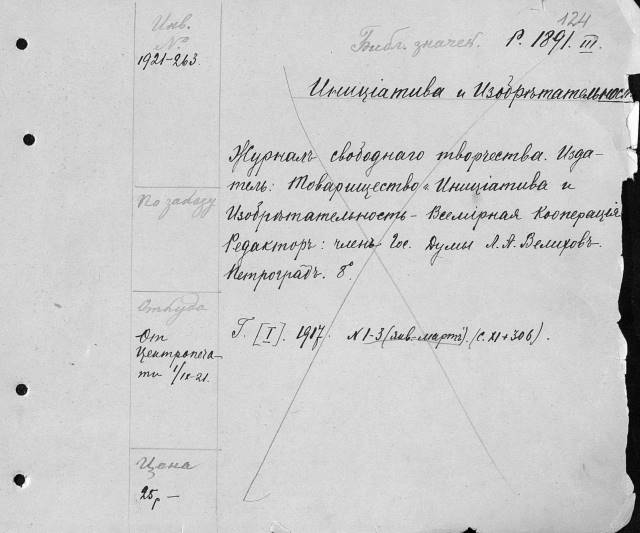 124
Инв.
№.
1921-263.
Библ. значек. Р. 1891. III.
Инициатива и Изобрѣтательность.
Журналъ свободнаго творчества. Изда-
тель: Товарищество „Инициатива и
Изобрѣтательность - Всемірная Кооперація
Редакторъ: членъ Гос. Думы Л. А. Велиховъ.
Петроградъ. 8°.
По заказу
Откуда
От
Центропеча-
ти 1/IX-21.
Г. [I]. 1917. N 1-3 (янв.-мартъ). (с. XI + 306).
Цена
25р —